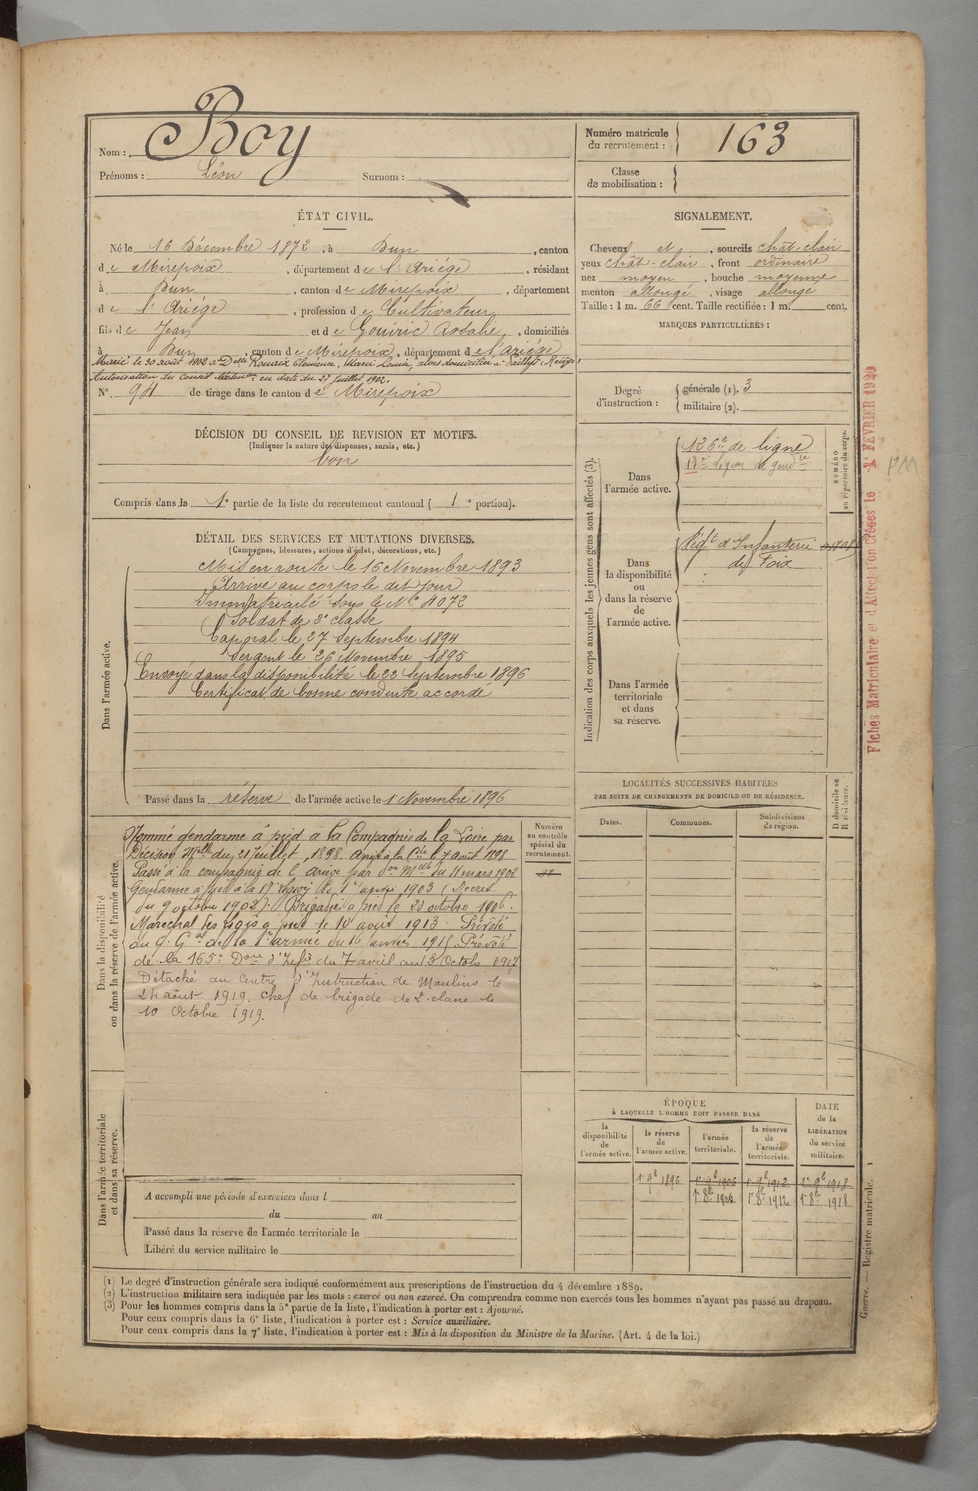 Nom : Boy
Prénoms : Léon Surnom :
Numéro matricule du recrutement : 163
Classe de mobilisation :
ÉTAT CIVIL.
Né le 16 Décembre 1872, à Dun, canton
de Mirepoix, département de l'Ariége, résidant
à Dun, canton de Mirepoix, département
de l'Ariége, profession de Cultivateur
fils de Jean et de Gouiric Rosalie, domiciliés
à Dun, canton de Mirepoix, département de l'Ariége
Marié le 30 août 1902 à Delle Rouaix Clémence, Marie Louise, alors domiciliée à
Autorisation du Conseil en date du 27 juillet 1902.
N° 94 de tirage dans le canton de Mirepoix
SIGNALEMENT.
Cheveux et, sourcils chât-clair
yeux chât-clair, front ordinaire
nez moyen, bouche moyenne
menton allongé, visage allongé
Taille : 1 m. 66 cent. Taille rectifiée : 1 m. cent.
MARQUES PARTICULIÈRES :
Degré d'instruction : générale (1). 3
militaire (2).
DÉCISION DU CONSEIL DE REVISION ET MOTIFS.
(Indiquer la nature des dispenses, sursis, etc.)
bon
Compris dans la 1e partie de la liste du recrutement cantonal ( 1e portion).
DÉTAIL DES SERVICES ET MUTATIONS DIVERSES.
(Campagnes, blessures, actions d'éclat, décorations, etc.)
Dans l'armée active.
Mis en route le 16 Novembre 1893
Arrivé au corps le dit jour
Immatriculé sous le N° 4072
Soldat de 2e classe
Caporal le 27 Septembre 1894
Sergent le 26 Novembre 1895
Envoyé dans la disponibilité le 22 Septembre 1896
Certificat de bonne conduite accordé
Passé dans la réserve de l'armée active le 1 Novembre 1896
Indication des corps auxquels les jeunes gens sont affectés (3).
NUMÉRO au répertoire du corps.
Dans l'armée active.
126e de ligne
17e légion de gendie
Dans la disponibilité ou dans la réserve de l'armée active.
Régt d'Infanterie
de Foix
Dans l'armée territoriale et dans sa réserve.
Fiches Matriculaire et d'Affectation Créées le -4 FÉVRIER 1920
PM
Dans la disponibilité ou dans la réserve de l'armée active.
Numéro au contrôle spécial du recrutement.
Nommé gendarme à pied à la Compagnie de la Loire par
Décision Mlle du 21 Juillet 1898. le 7 août 1898
Passé à la compagnie de l'Ariège par Don Mlle du 11 mars 1902
Gendarme à pied à la 17e Légion le 1er 1903 (Décret
du 9 octobre 1902). Brigadier à pied le 20 octobre 1906.
Maréchal des logis à pied le 10 août 1913. Prévôté
du Q. Gal de la 1e armée du 16 1915 Prévôté
de la 165e Don d'Infie du 7 avril au 3 Octobre 1917
Détaché au Centre d'Instruction de Moulins le
24 août 1919. chef de brigade de 2e classe le
10 Octobre 1919.
LOCALITÉS SUCCESSIVES HABITÉES
PAR SUITE DE CHANGEMENTS DE DOMICILE OU DE RÉSIDENCE.
D domicile ou R résidence.
Dates. Communes. Subdivisions de région.
ÉPOQUE
À LAQUELLE L'HOMME DOIT PASSER DANS
DATE de la LIBÉRATION du service militaire.
la disponibilité de l'armée active. la réserve de l'armée active. l'armée territoriale. la réserve de l'armée territoriale.
1er 9b 1896 1er 9b 1906 1er 9b 1912 1er 9b 1918
1er 8b 1906 1er 8b 1912 1er 8b 1918
Dans l'armée territoriale et dans sa réserve.
A accompli une période d'exercices dans l
du au
Passé dans la réserve de l'armée territoriale le
Libéré du service militaire le
(1) Le degré d'instruction générale sera indiqué conformément aux prescriptions de l'instruction du 4 décembre 1889.
(2) L'instruction militaire sera indiquée par les mots : exercé ou non exercé. On comprendra comme non exercés tous les hommes n'ayant pas passé au drapeau.
(3) Pour les hommes compris dans la 5e partie de la liste, l'indication à porter est : Ajourné.
Pour ceux compris dans la 6e liste, l'indication à porter est : Service auxiliaire.
Pour ceux compris dans la 7e liste, l'indication à porter est : Mis à la disposition du Ministre de la Marine. (Art. 4 de la loi.)
Guerre. — Registre matricule. 1